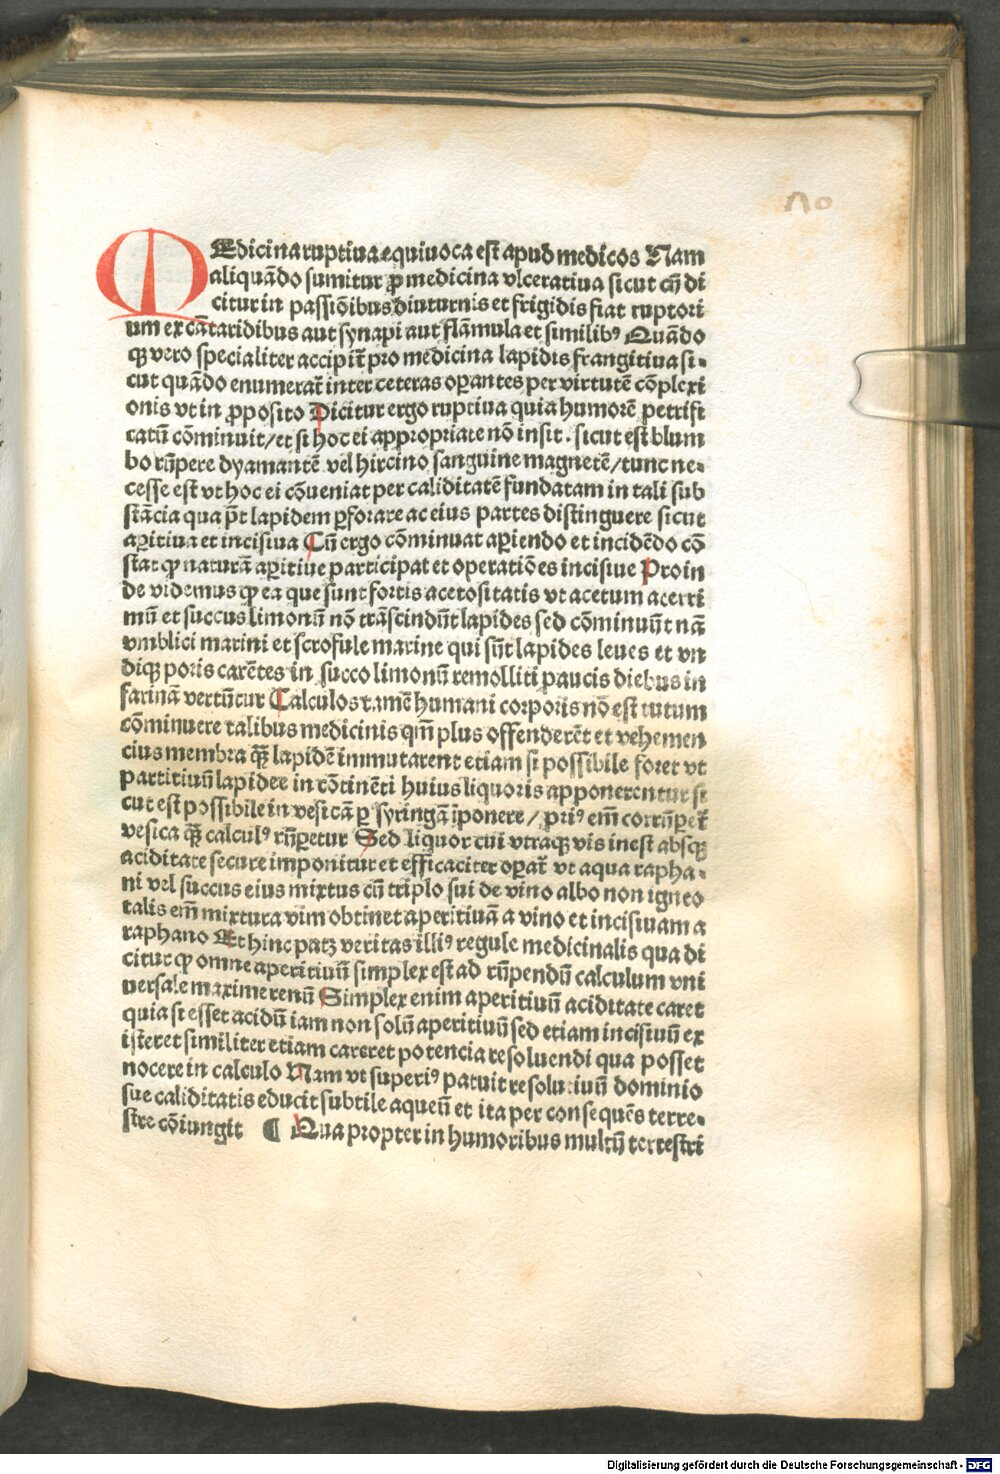 no
MEdicina ruptiua equiuoca est apud medicos Nam
aliquādo sumitur ꝓ medicina vlceratiua sicut cū di
citur in passiōibus diuturnis et frigidis fiat ruptori
um ex cātaridibus aut synapi aut flāmula et similibꝰ Quādo
qꝫ vero specialiter accipit̄ pro medicina lapidis frangitiua si⸗
cut quādo enumerat̄ inter ceteras oꝑantes per virtutē cōplexi
onis vt in ꝓposito Dicitur ergo ruptiua quia humorē petrifi
catū cōminuit/et si hoc ei appropriate nō insit. sicut est blum
bo rūpere dyamantē vel hircino sanguine magnetē/tunc ne⸗
cesse est vt hoc ei cōueniat per caliditatē fundatam in tali sub
stācia qua p̄t lapidem ꝑforare ac eius partes distinguere sicut
aꝑitiua et incisiua Cū ergo cōminuat aꝑiendo et incidēdo cō
stat ꝙ naturā aꝑitiue participat et operatiōes incisiue Proin
de videmus ꝙ ea que sunt fortis acetositatis vt acetum acerri
mū et succus limonū nō trāscindūt lapides sed cōminuūt nā
vmblici marini et scrofule marine qui sūt lapides leues et vn
diqꝫ poris carētes in succo limonū remolliti paucis diebus in
farinā vertūtur Calculos tamē humani corporis nō est tutum
cōminuere talibus medicinis qm̄ plus offenderēt et vehemen
cius membra qꝫ̄ lapidē immutarent etiam si possibile foret vt
partitiuū lapidee in cōtinēti huius liquoris apponerentur si
cut est possibile in vesicā ꝑ syringā īponere/ priꝰ em̄ corrūperet̄
vesica qꝫ̄ calculꝰ rūperetur Sed liquor cui vtraqꝫ vis inest absqꝫ
aciditate secure imponitur et efficaciter oꝑat̄ vt aqua rapha⸗
ni vel succus eius mixtus cū triplo sui de vino albo non igneo
talis em̄ mixtura vim obtinet aperitiuā a vino et incisiuam a
raphano Et hinc patꝫ veritas illiꝰ regule medicinalis qua di
citur ꝙ omne aperitiuū simplex est ad rūpendū calculum vni
uersale maxime renū Simplex enim aperitiuū aciditate caret
quia si esset acidū iam non solū aperitiuū sed etiam incisiuū ex
isteret similiter etiam careret potencia resoluendi qua posset
nocere in calculo Nam vt superiꝰ patuit resolutiuū dominio
sue caliditatis educit subtile aqueū et ita per consequēs terre⸗
stre cōiungit ¶ Qua propter in humoribus multū terrestri
Digitalisierung gefördert durch die Deutsche Forschungsgemeinschaft - DFG